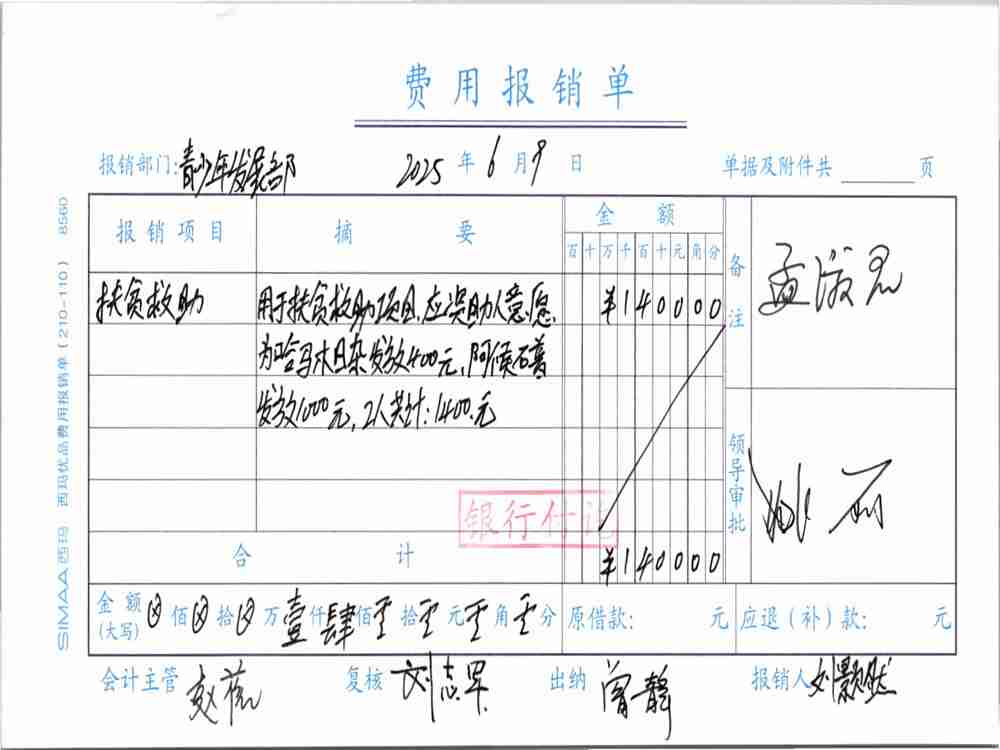 费用报销单
报销部门:青少年发展部 2025 年 6 月 9 日 单据及附件共 页
报销项目 摘要 金额 备注
百十万千百十元角分
扶贫救助 用于扶贫救助项目,应资助人意愿, ¥140000
为哈马木日杂发放400元,阿侯石普
发放1000元,2人共计:1400.元
领导审批
银行付讫
合计 ¥140000
金额(大写) ⊗佰⊗拾⊗万壹仟肆佰零拾零元零角零分 原借款: 元 应退(补)款: 元
会计主管 复核 刘志军 出纳 曾静 报销人 刘颢然
SIMAA西玛 西玛优品费用报销单(210-110) 8560